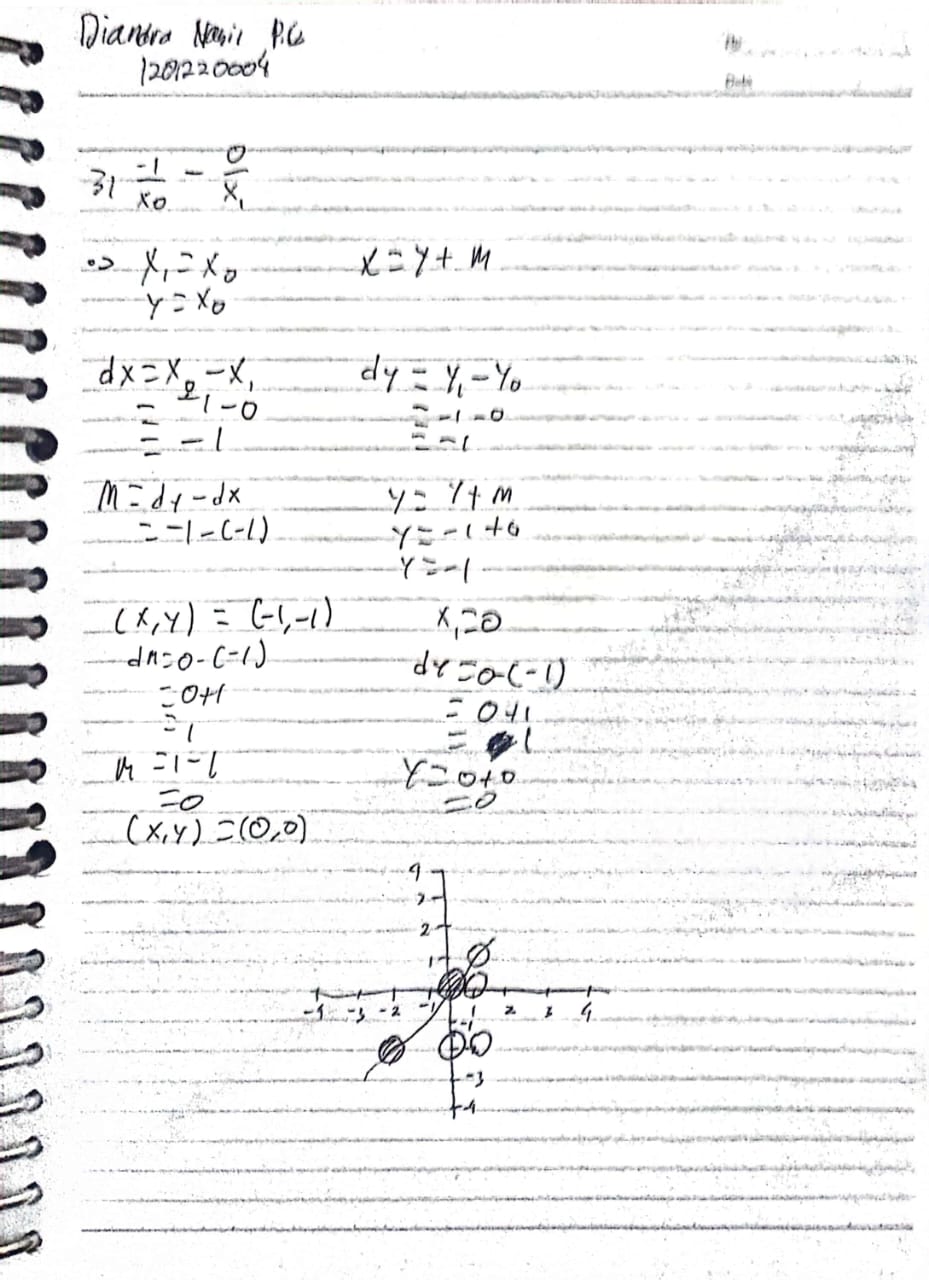 Diandra P.G
1201220004
3) -1/x0 - 0/x1
=> X1 = X0 X = Y + M
Y = X0
dx = X2 - X1 dy = Y1 - Y0
= -1 - 0 = -1 - 0
= -1 = -1
M = dy - dx Y = Y + M
= -1 - (-1) Y = -1 + 0
Y = -1
(X, Y) = (-1, -1) X1 = 0
dx = 0 - (-1) dy = 0 - (-1)
= 0 + 1 = 0 + 1
= 1 = 1
M = 1 - 1 Y = 0 + 0
= 0 = 0
(X, Y) = (0, 0)
4
3
2
1
-4 -3 -2 -1 1 2 3 4
-1
-3
-4